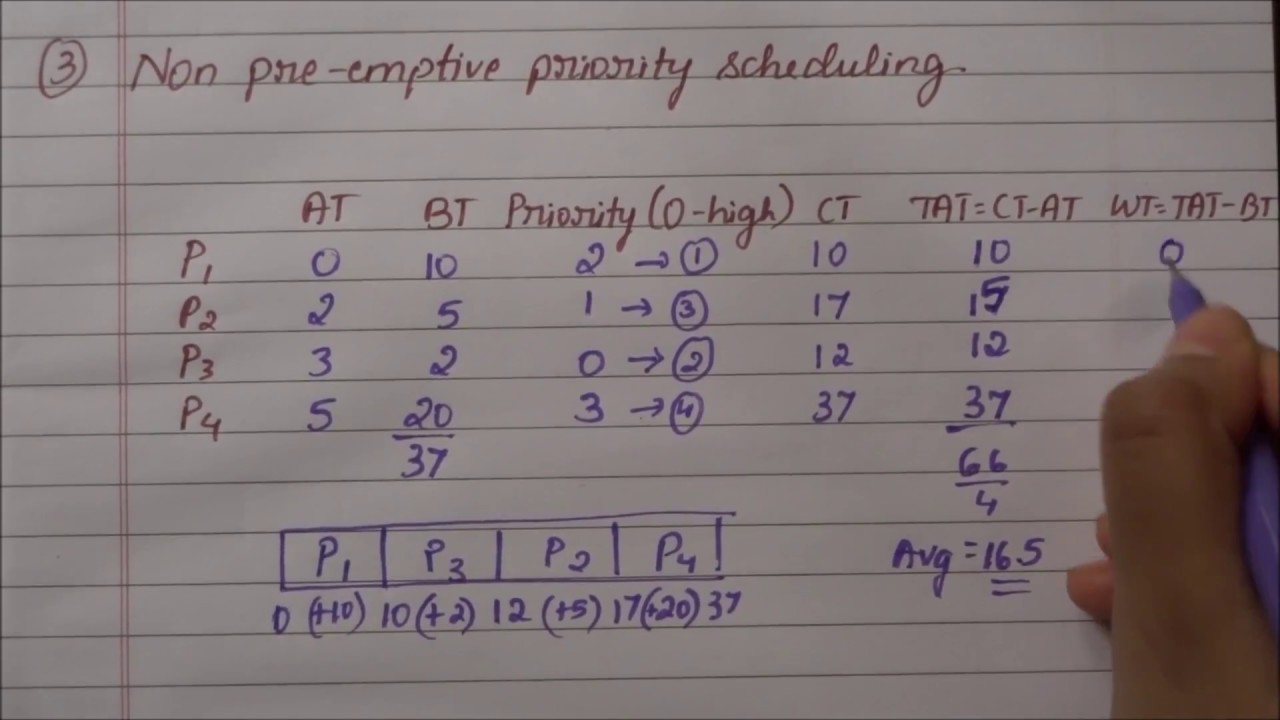 ③ Non pre-emptive priority scheduling.
AT BT Priority (0-high) CT TAT=CT-AT WT=TAT-BT
P1 0 10 2 → ① 10 10 0
P2 2 5 1 → ③ 17 15
P3 3 2 0 → ② 12 12
P4 5 20 3 → ④ 37 37
37 66
4
P1 P3 P2 P4 Avg = 16.5
0 (+10) 10 (+2) 12 (+5) 17 (+20) 37